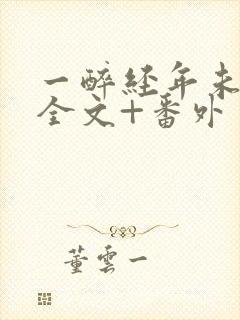 一醉经年未
全文+番外
董云一